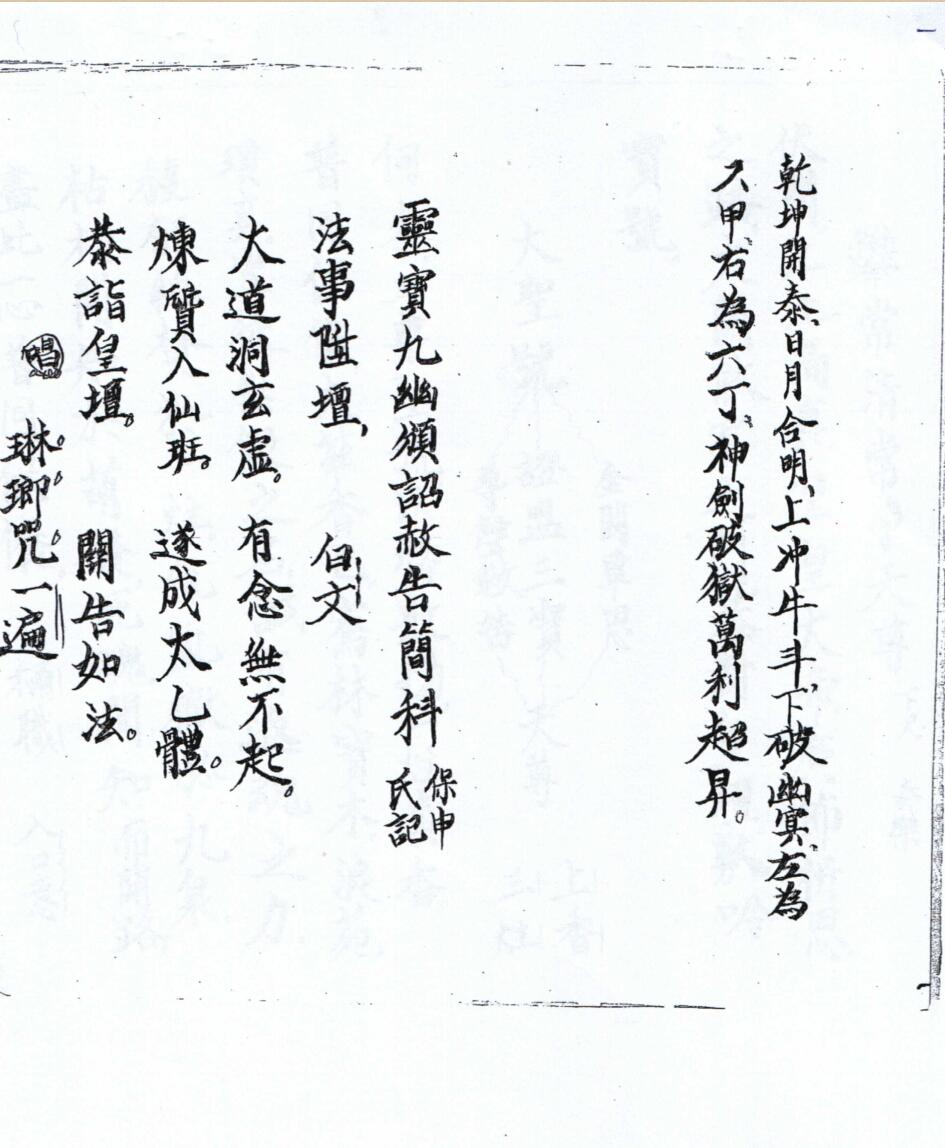 乾坤開泰、日月合明、上冲牛斗、下破幽冥、左為
六甲、右為六丁、神劍破獄萬利超昇。
靈寶九幽頒詔赦告簡科 保申氏記
法事陞壇、 白文
大道洞玄虛。有念無不起。
煉質入仙班。遂成太乙體。
恭詣皇壇。 開告如法。
唱 琳。瑯。咒。一遍